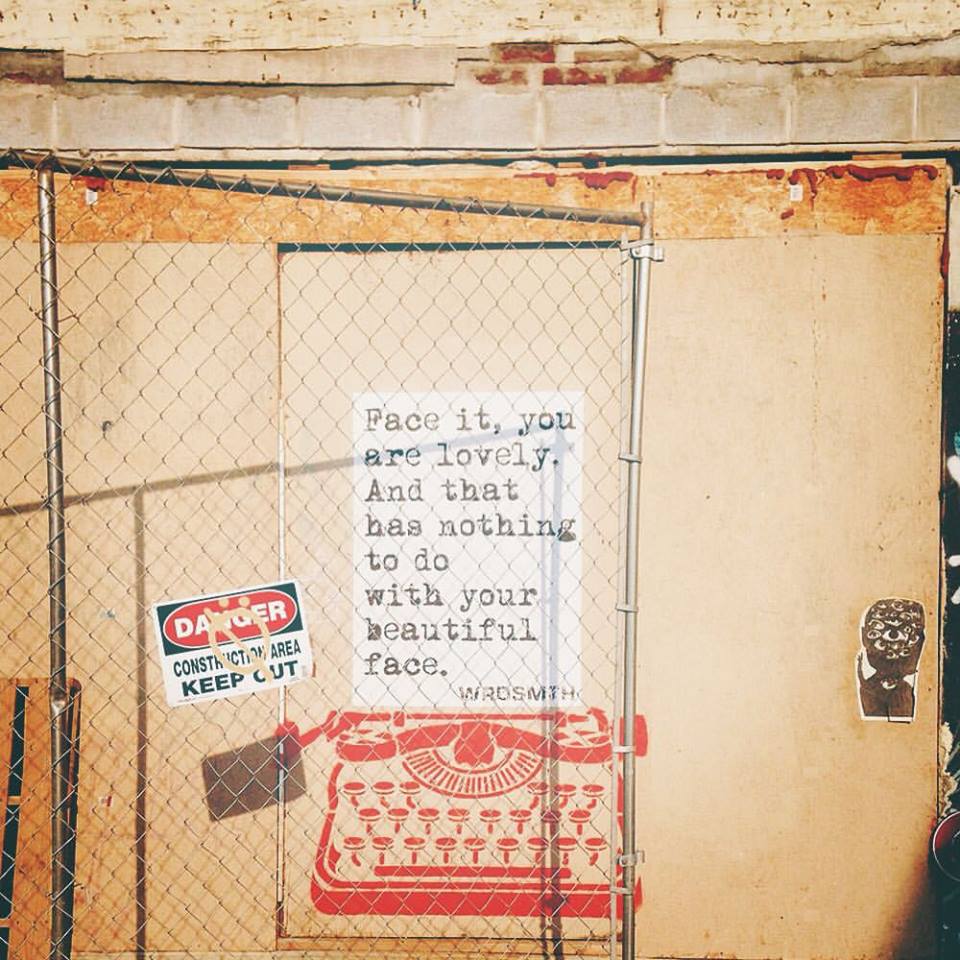 Face it, you
are lovely.
And that
has nothing
to do
with your
beautiful
face.
WRDSMTH
DANGER
CONSTRUCTION AREA
KEEP OUT